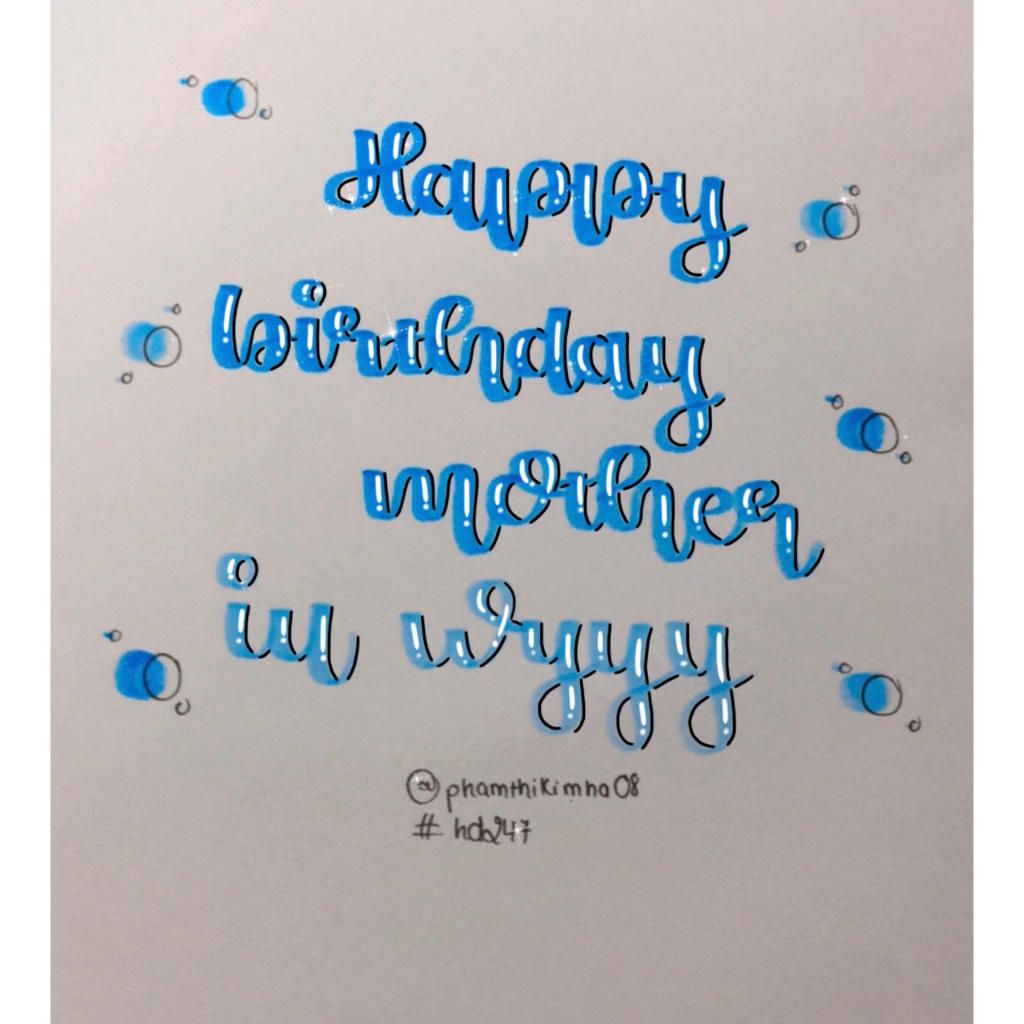 Happy
birthday
mother
iu wyyy
@phamthikimha08
#hdc247